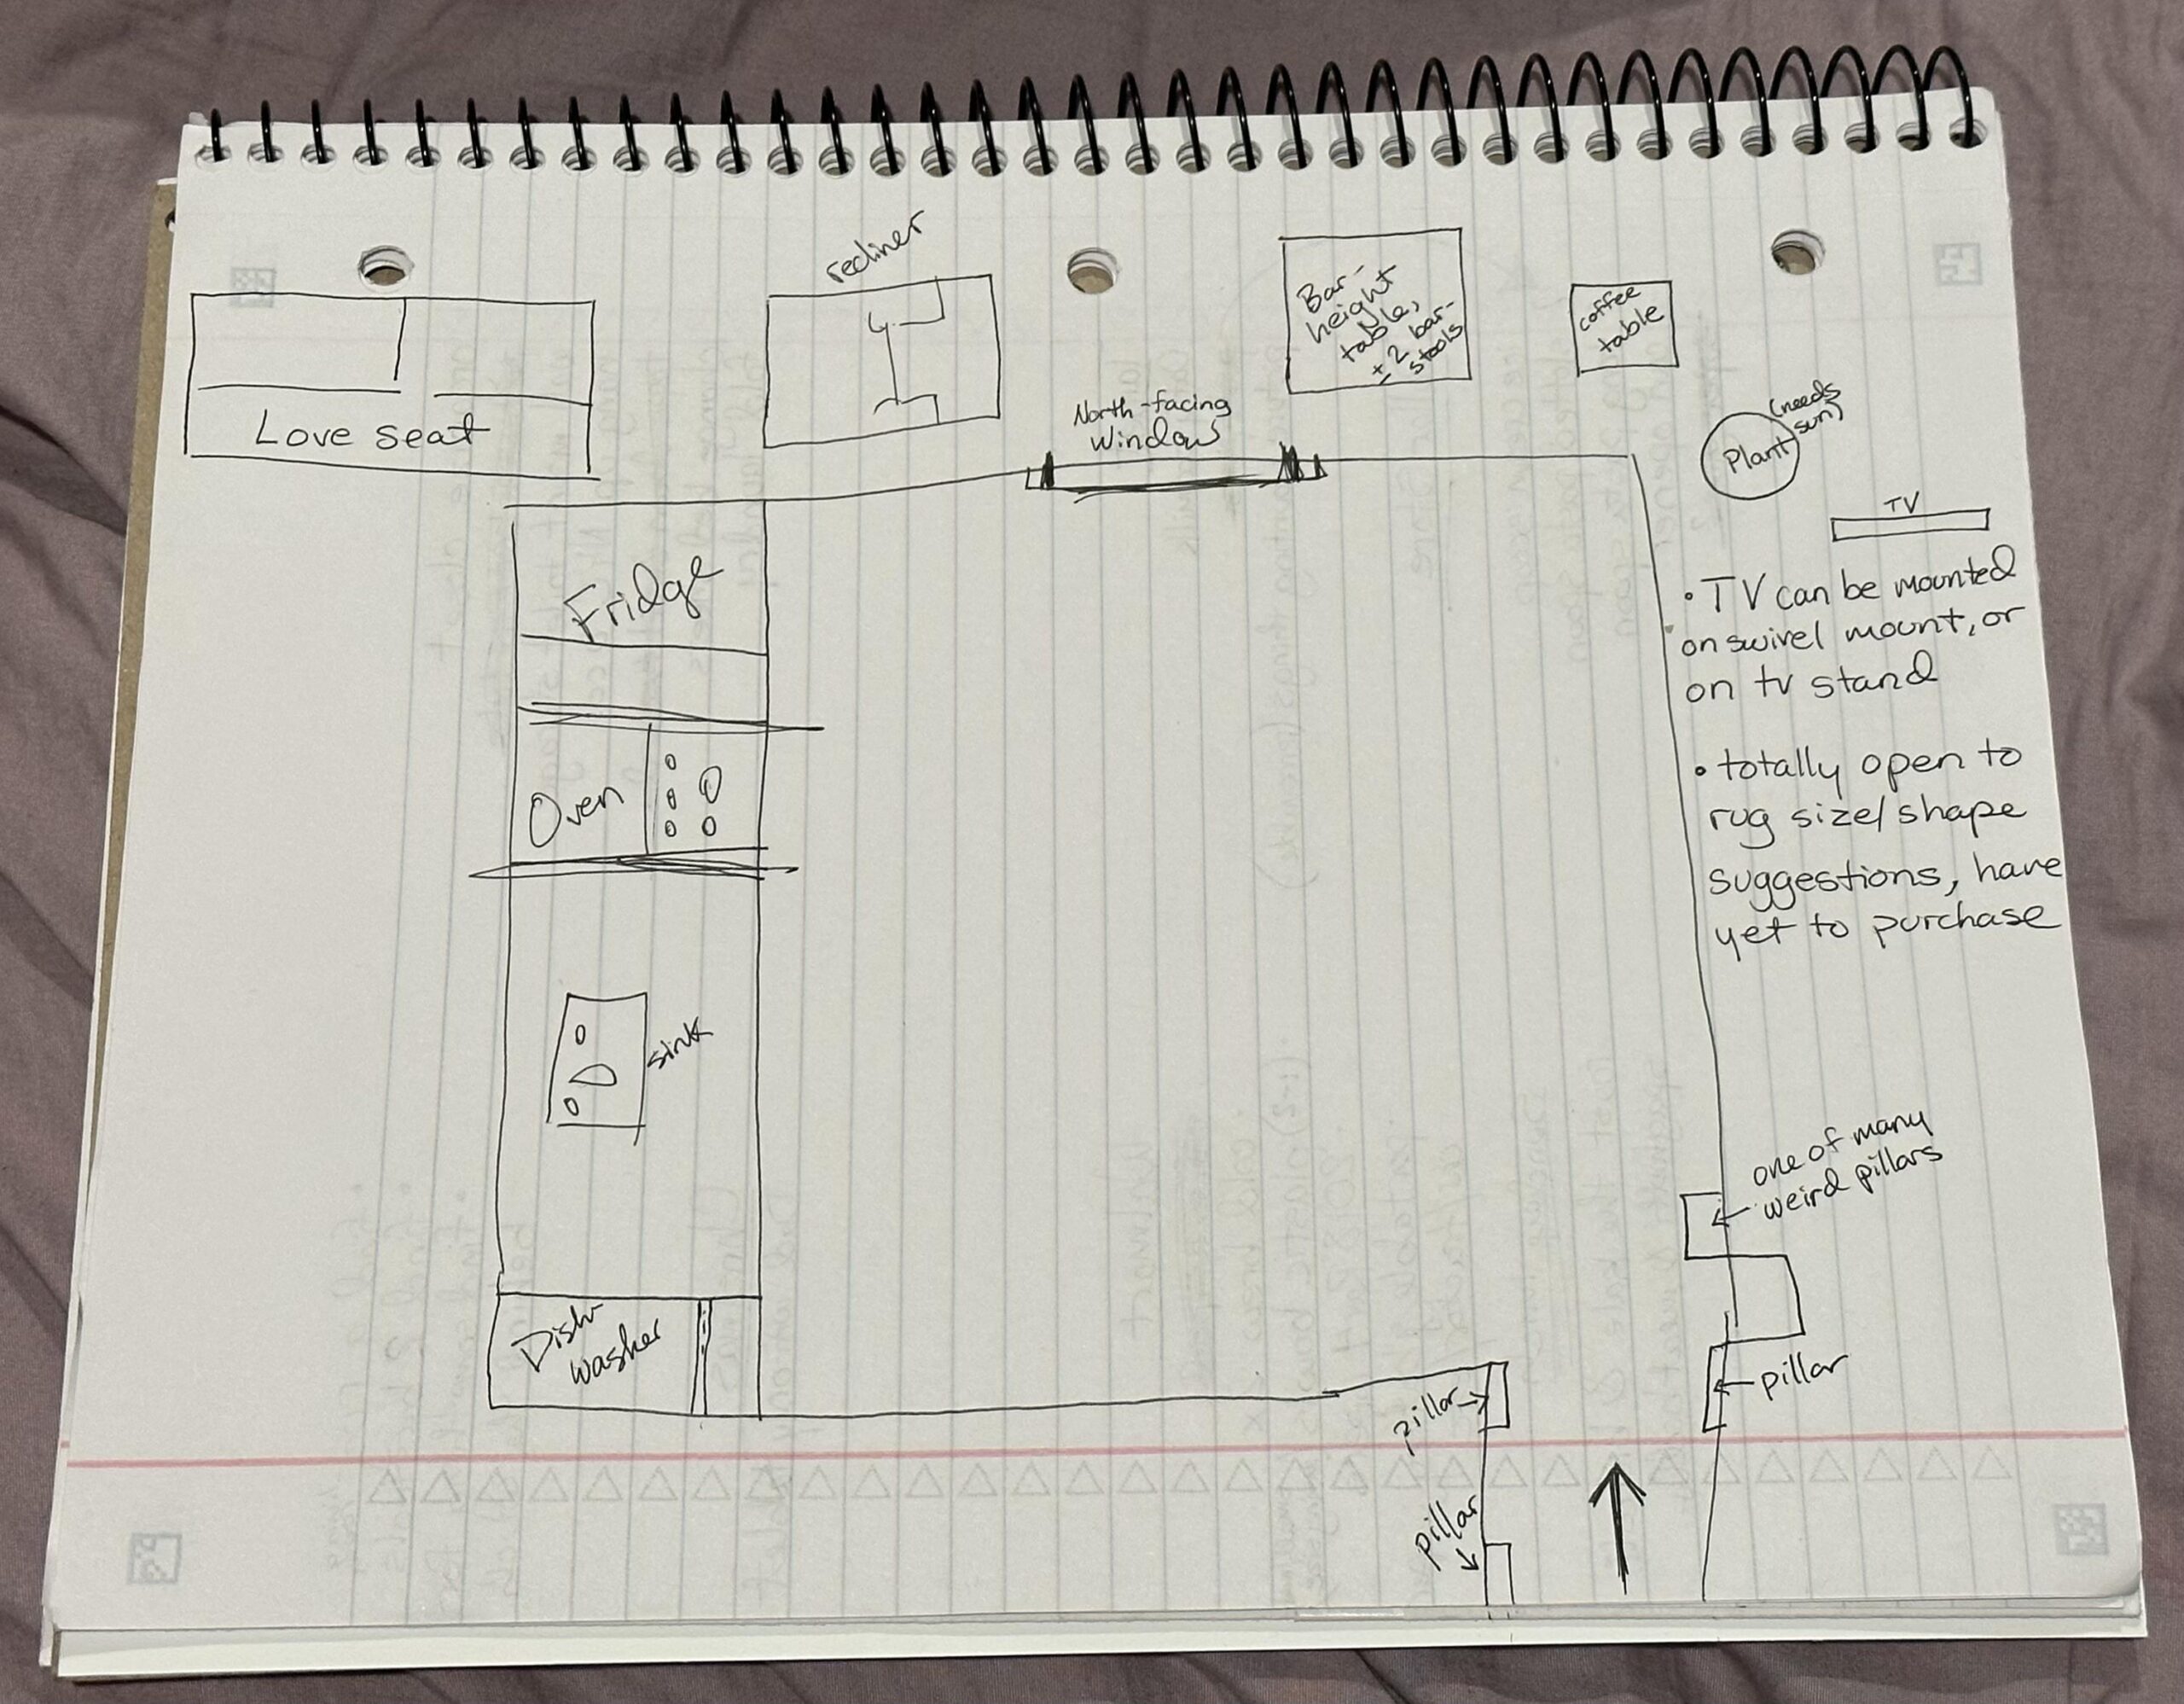 Love seat
recliner
North-facing
Window
Bar-
height
table,
+ 2 bar-
stools
coffee
table
Plant
(needs
sun)
TV
• TV can be mounted
on swivel mount, or
on tv stand
• totally open to
rug size/shape
suggestions, have
yet to purchase
Fridge
Oven
sink
Dish-
washer
one of many
weird pillars
pillar
pillar
pillar